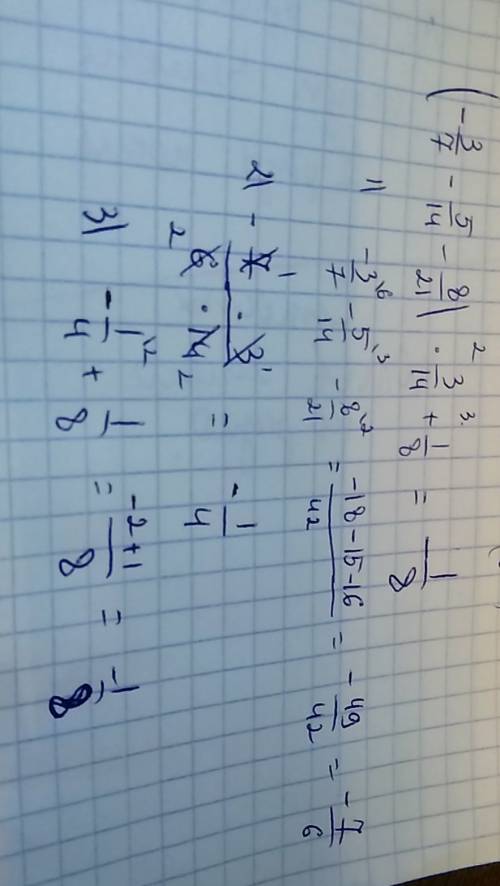 (-3/7 - 5/14 - 8/21) ²· 3/14 ³·+ 1/8 = 1/8
1) -3\6/7 -5\3/14 -8\2/21 = -18-15-16/42 = -49/42 = -7/6
2) - 7 1 · 3 1/6 2 · 14 2 = -1/4
3) -1\2/4 + 1/8 = -2+1/8 = -1/8